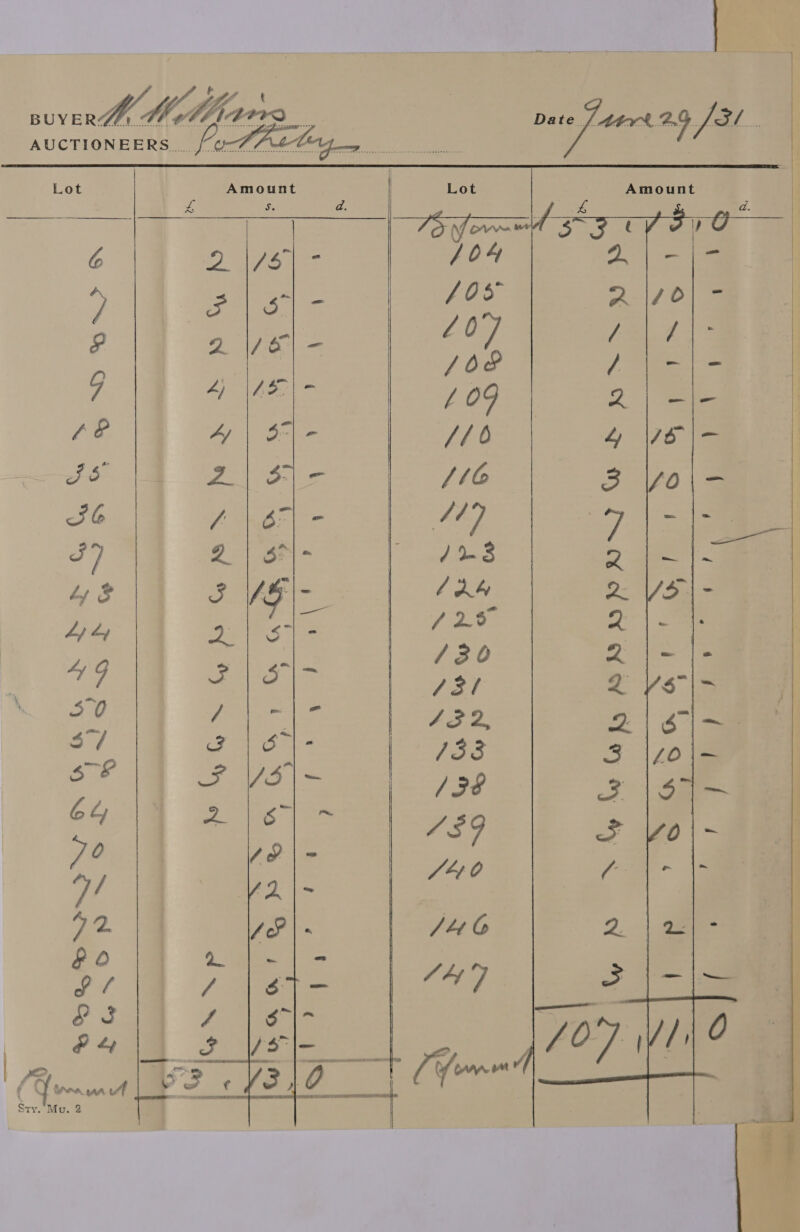 BUYER W. Williams Date June 29/31
AUCTIONEERS Sotheby
Lot Amount Lot Amount
£ s. d. £ s. d.
B. Forward 53 : 13 , 0
6 2 15 - 104 2 - -
7 3 5 - 105 2 10 -
8 2 15 - 107 1 1 -
9 4 15 - 108 1 - -
18 4 5 - 109 2 - -
35 2 5 - 110 4 15 -
36 1 5 - 116 3 10 -
37 2 5 - 117 7 - -
43 3 15 - 123 2 - -
44 2 5 - 124 2 15 -
49 3 5 - 125 2 - -
50 1 - - 130 2 - -
51 3 5 - 131 2 15 -
58 3 15 - 132 2 5 -
64 2 5 - 133 3 10 -
70 18 - 138 3 5 -
71 12 - 139 3 10 -
72 18 - 140 1 - -
80 2 - - 146 2 2 -
81 1 5 - 147 3 - -
83 1 5 -
84 3 15 -
C Forward 53 : 13 , 0 C Forward 107 , 11 , 0
Sty. Mu. 2